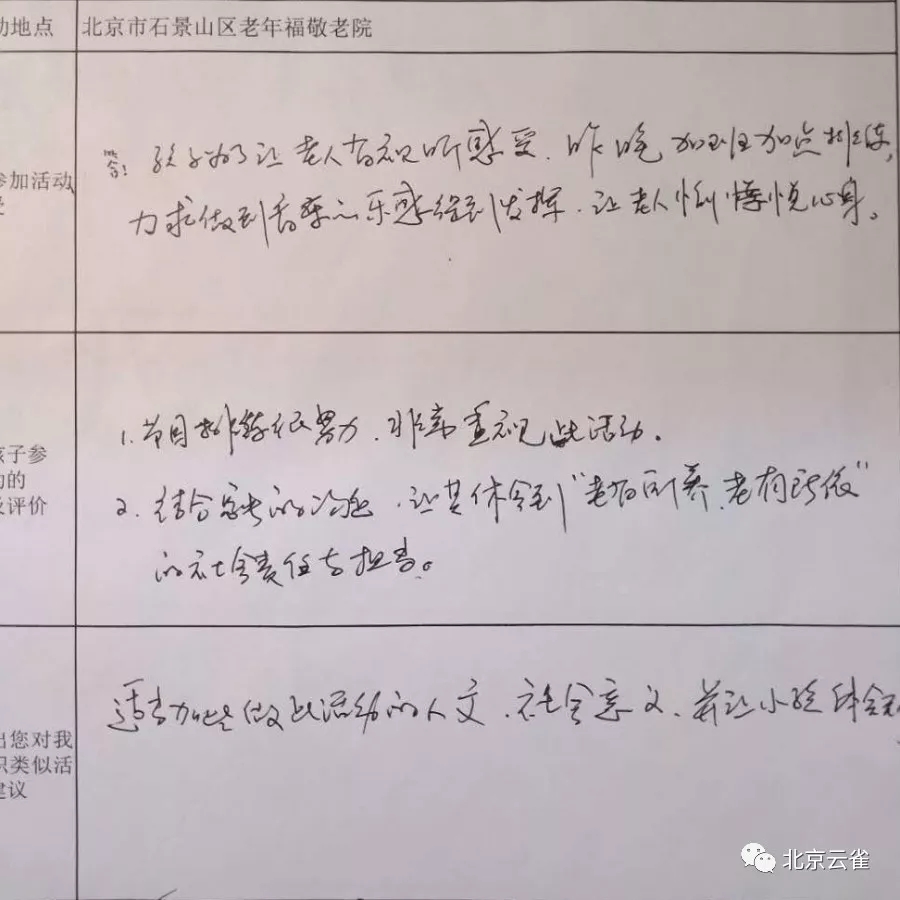 动地点 北京市石景山区老年福敬老院
参加活动
答：孩子为了让老人有视听感受，昨晚加班加点排练，
力求做到音乐的乐感得到发挥，让老人愉悦心身。
孩子参
动的
及评价
1.节目排练很努力，非常重视此活动。
2.结合家长的，让其体会到“老有所养，老有所依”
的社会责任与担当。
出您对我
织类似活
建议
适当加些做此活动的人文，社会意义，并让小孩体会
北京云雀